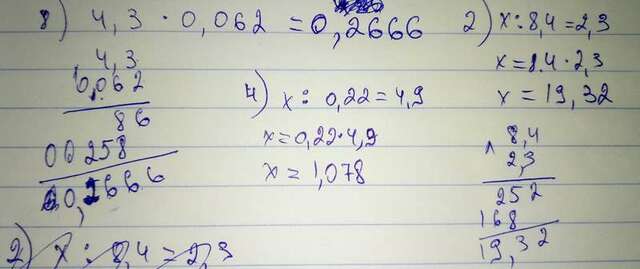 8) 4,3 · 0,062 = 0,2666
4,3
0,062
86
00258
0,2666
2) x : 8,4 = 2,3
4) x : 0,22 = 4,9
x = 0,22 · 4,9
x = 1,078
2) x : 8,4 = 2,3
x = 8.4 · 2,3
x = 19,32
8,4
2,3
252
168
19,32